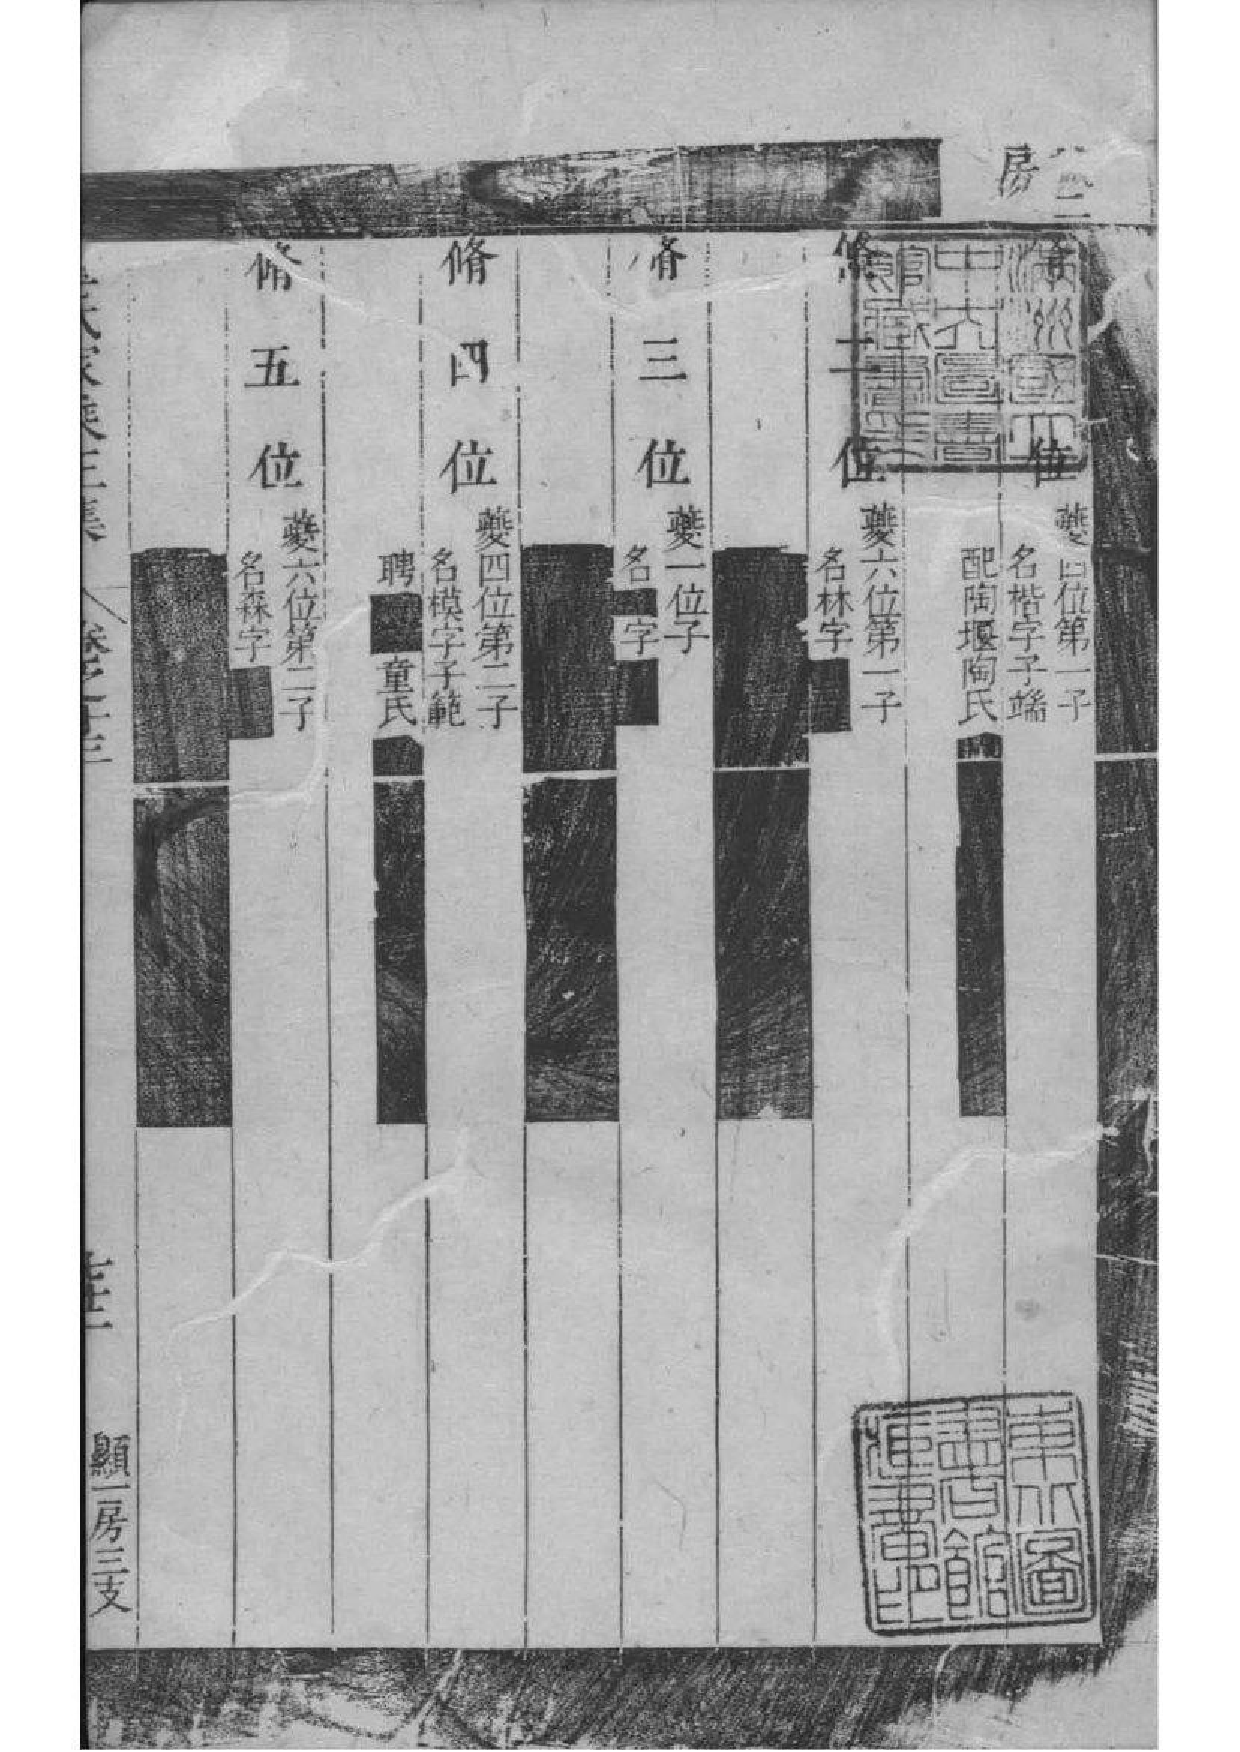 房
位
夔四位第一子
名楷字子端
配陶堰陶氏
脩二位
夔六位第一子
名林字
脩三位
夔一位子
名
字
脩四位
夔四位第二子
名模字子範
聘
童氏
脩五位
夔六位第二子
名森字
顯一房三支
滿洲國立
中央圖書
館藏書印
東北圖
書館